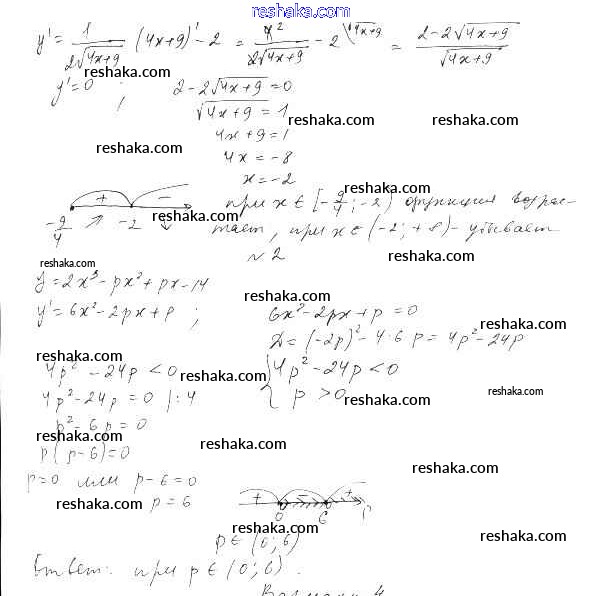 reshaka.com
y' = 1/(2√(4x+9)) (4x+9)' - 2 = 4²/(2√(4x+9)) - 2 \√4x+9 = (2-2√(4x+9))/√(4x+9)
reshaka.com
y'=0 ; 2-2√(4x+9)=0
√(4x+9) = 1
reshaka.com reshaka.com
4x+9=1
reshaka.com
4x = -8
x = -2
reshaka.com
+ -
при x ∈ [-9/4; -2) функция возрас-
-9/4 ↗ -2 ↘ тает, при x ∈ (-2; +∞) - убывает
reshaka.com
№2
reshaka.com
y = 2x³ - px² + px - 14
reshaka.com
y' = 6x² - 2px + p ; 6x² - 2px + p = 0
reshaka.com
D = (-2p)² - 4·6p = 4p² - 24p
reshaka.com
4p² - 24p < 0 { 4p² - 24p < 0
reshaka.com
4p² - 24p = 0 |:4 p > 0
reshaka.com reshaka.com
p² - 6p = 0
reshaka.com reshaka.com
p(p-6)=0
reshaka.com
p=0 или p-6=0
reshaka.com p = 6
+ - +
0 6 p
reshaka.com reshaka.com
p ∈ (0; 6)
Ответ: при p ∈ (0; 6).
reshaka.com
Вариант 4